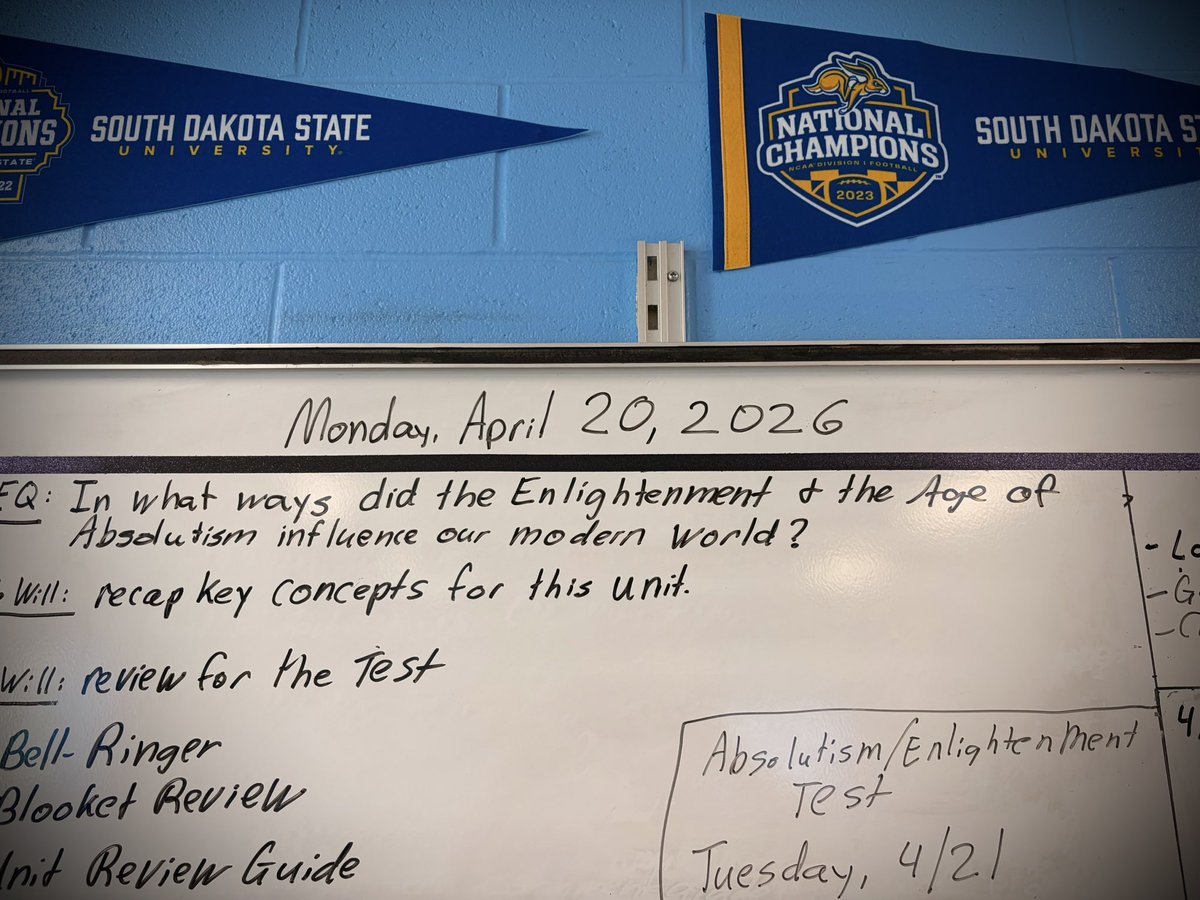 NAL
IONS
STATE
22
SOUTH DAKOTA STATE
UNIVERSITY
NATIONAL
CHAMPIONS
NCAA DIVISION I FOOTBALL
2023
SOUTH DAKOTA ST
UNIVERSIT
Monday, April 20, 2026
EQ: In what ways did the Enlightenment & the Age of
Absolutism influence our modern world?
Will: recap key concepts for this unit.
Will: review for the Test
Bell-Ringer
Blooket Review
Unit Review Guide
Absolutism/Enlightenment
Test
Tuesday, 4/21
- Lo
- G
- C
4/